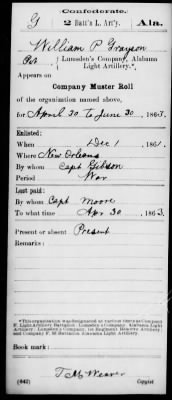 Confederate.
G 2 Batt'l L. Art'y. Ala.
William P Grayson
Pvt { Lumsden's Company, Alabama
Light Artillery.*
Appears on
Company Muster Roll
of the organization named above,
for April 30 to June 30, 1863.
Enlisted:
When Dec 1, 1861.
Where New Orleans
By whom Capt Gibson
Period War
Last paid:
By whom Capt Moore
To what time Apr 30, 1863.
Present or absent Present
Remarks:
*This organization was designated at various times as Company
F, Light Artillery Battalion; Lumsden's Company, Alabama Light
Artillery; Lumsden's Company, 1st Regiment Reserve Artillery,
and Company F, 2d Battalion Alabama Light Artillery.
T. M. Weaver
(642) Copyist